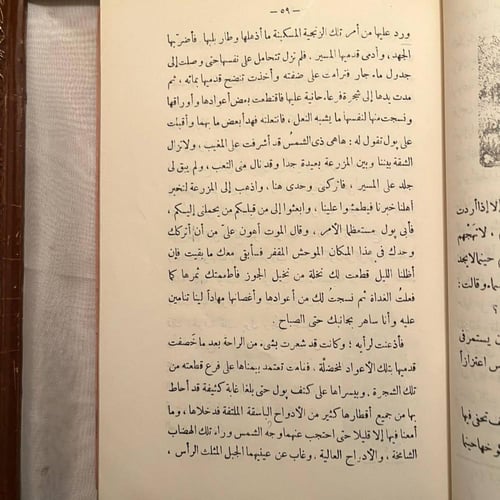 — ٥٩ —
ورد عليها من أمر تلك الزنجية المسكينة ما أذهلها وطار بلبها. فأضر بها
الجهد، وأدمى قدميها المسير. فلم تزل تتحامل على نفسها حتى وصلت إلى
جدول ماء جار فترامت على ضفته وأخذت تنضح قدميها بمائه، ثم
مدت يدها إلى شجرة فرعاء حانية عليها فاقتطعت بعض أعوادها وأوراقها
ونسجت منها لنفسها ما يشبه النعل، فانتعلته فهدأ بعض ما بها وأقبلت
على پول تقول له: ها هى ذى الشمس قد أشرفت على المغيب، ولا تزال
الشقة بيننا وبين المزرعة بعيدة جدا وقد نال منى التعب، ولم يبق لى
جلد على المسير، فاتركنى وحدى هنا، واذهب إلى المزرعة لتخبر
أهلنا خبرنا فيطمئوا علينا، وابعثوا إلى من قبلكم من يحملنى إليكم،
فأبى پول مستعظما الأمر، وقال الموت أهون علىّ من أن أتركك
وحدك فى هذا المكان الموحش المقفر فسأبقى معك ما بقيت فإن
أظلنا الليل قطعت لك نخلة من نخيل الجوز فأطعمتك ثمرها كما
فعلتُ الغداة ثم نسجتُ لك من أعوادها وأغصانها مهاداً لينا تنامين
عليه وأنا ساهر بجانبك حتى الصباح.
فأذعنت لرأيه؛ وكانت قد شعرت بشىء من الراحة بعد ما خصفت
قدميها بتلك الأعواد المخضلّة، فقامت تعتمد بيمناها على فرع قطعته من
تلك الشجرة، وبيسراها على كتف پول حتى بلغا غابة كثيفة قد أحاط
بها من جميع أقطارها كثير من الأدواح الباسقة الملتفة فدخلاها، وما
أمعنا فيها إلا قليلا حتى احتجب عنهما وجه الشمس وراء تلك الهضاب
الشامخة، والأدواح العالية. وغاب عن عينيهما الجبل المثلث الرأس،